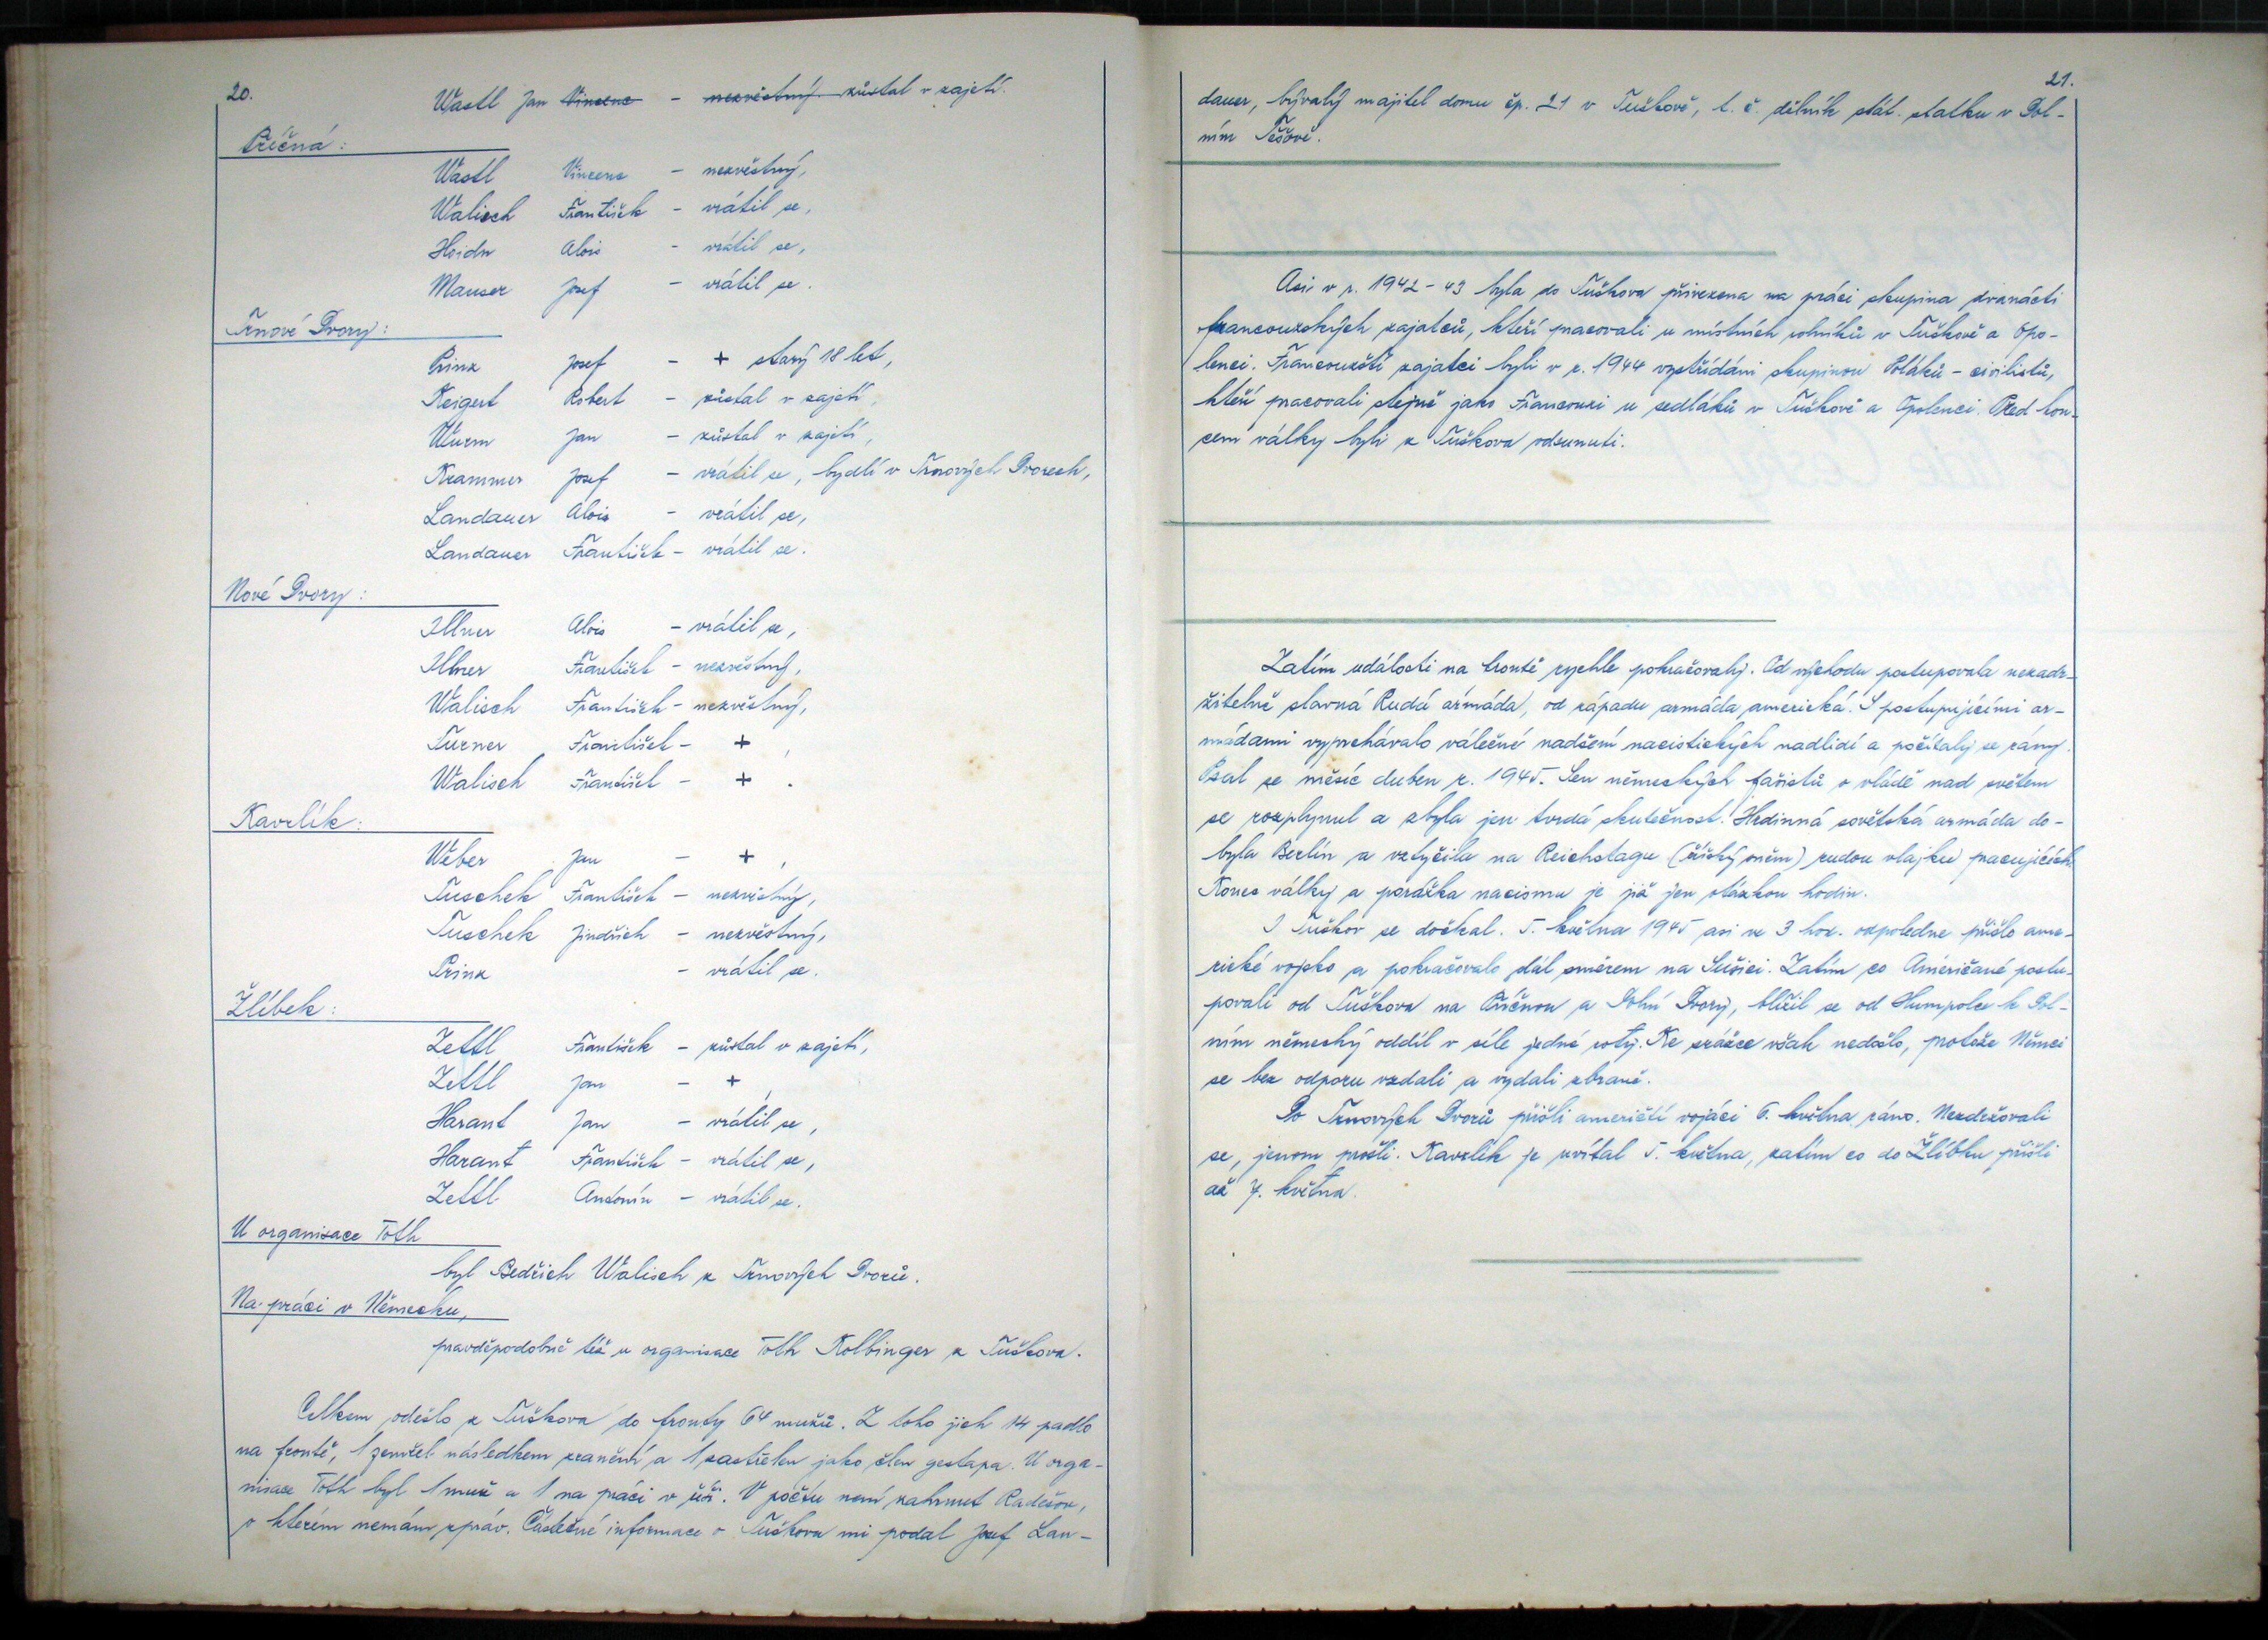 20.
Wastl Jan Vincenc - nezvěstný. zůstal v zajetí.
Příčná:
Wastl Vincenc - nezvěstný,
Walisch František - vrátil se,
Hoidn Alois - vrátil se,
Mauser Josef - vrátil se.
Trnové Dvory:
Prinz Josef - + starý 18 let,
Keigert Robert - zůstal v zajetí,
Wurm Jan - zůstal v zajetí,
Krammer Josef - vrátil se, bydlí v Trnových Dvorech,
Landauer Alois - vrátil se,
Landauer František - vrátil se.
Nové Dvory:
Illner Alois - vrátil se,
Illner František - nezvěstný,
Walisch František - nezvěstný,
Turner František - + ,
Walisch František - + .
Kavrlík:
Weber Jan - + ,
Tuschek František - nezvěstný,
Tuschek Jindřich - nezvěstný,
Prinz - vrátil se.
Žlíbek:
Zettl František - zůstal v zajetí,
Zettl Jan - + ,
Harant Jan - vrátil se,
Harant František - vrátil se,
Zettl Antonín - vrátil se.
U organisace Toth
byl Bedřich Walisch z Trnových Dvorů.
Na práci v Německu,
pravděpodobně též u organisace Toth Kolbinger z Tuškova.
Celkem odešlo z Tuškova do fronty 64 mužů. Z toho jich 14 padlo
na frontě, 1 zemřel následkem zranění a 1 zastřelen jako člen gestapa. U orga-
nisace Toth byl 1 muž a 1 na práci v říši. V počtu není zahrnut Radešov,
o kterém nemám zpráv. Částečné informace o Tuškovu mi podal Josef Lan-
21.
dauer, bývalý majitel domu čp. 21 v Tuškově, t. č. dělník stát. statku v Dol-
ním Těšově.
Asi v r. 1942 - 43 byla do Tuškova přivezena na práci skupina dvanácti
francouzských zajatců, kteří pracovali u místních rolníků v Tuškově a Opo-
lenci. Francouzští zajatci byli v r. 1944 vystřídáni skupinou Poláků - civilistů,
kteří pracovali stejně jako Francouzi u sedláků v Tuškově a Opolenci. Před kon-
cem války byli z Tuškova odsunuti.
Zatím události na frontě rychle pokračovaly. Od východu postupovala nezadr-
žitelně slavná Rudá armáda, od západu armáda americká. S postupujícími ar-
mádami vyprchávalo válečné nadšení nacistických nadlidí a počítaly se rány.
Psal se měsíc duben r. 1945. Sen německých fašistů o vládě nad světem
se rozplynul a zbyla jen tvrdá skutečnost. Hrdinná sovětská armáda do-
byla Berlín a vztyčila na Reichstagu (říšský sněm) rudou vlajku pracujících.
Konec války a porážka nacismu je již jen otázkou hodin.
I Tuškov se dočkal. 5. května 1945 asi ve 3 hod. odpoledne přišlo ame-
rické vojsko a pokračovalo dál směrem na Sušici. Zatím co Američané postu-
povali od Tuškova na Příčnou a Dolní Dvory, blížil se od Humpolce k Dol-
ním německý oddíl v síle jedné roty. Ke srážce však nedošlo, protože Němci
se bez odporu vzdali a vydali zbraně.
Do Trnových Dvorů přišli američtí vojáci 6. května ráno. Nezdržovali
se, jenom prošli. Kavrlík je uvítal 5. května, zatím co do Žlíbku přišli
až 7. května.